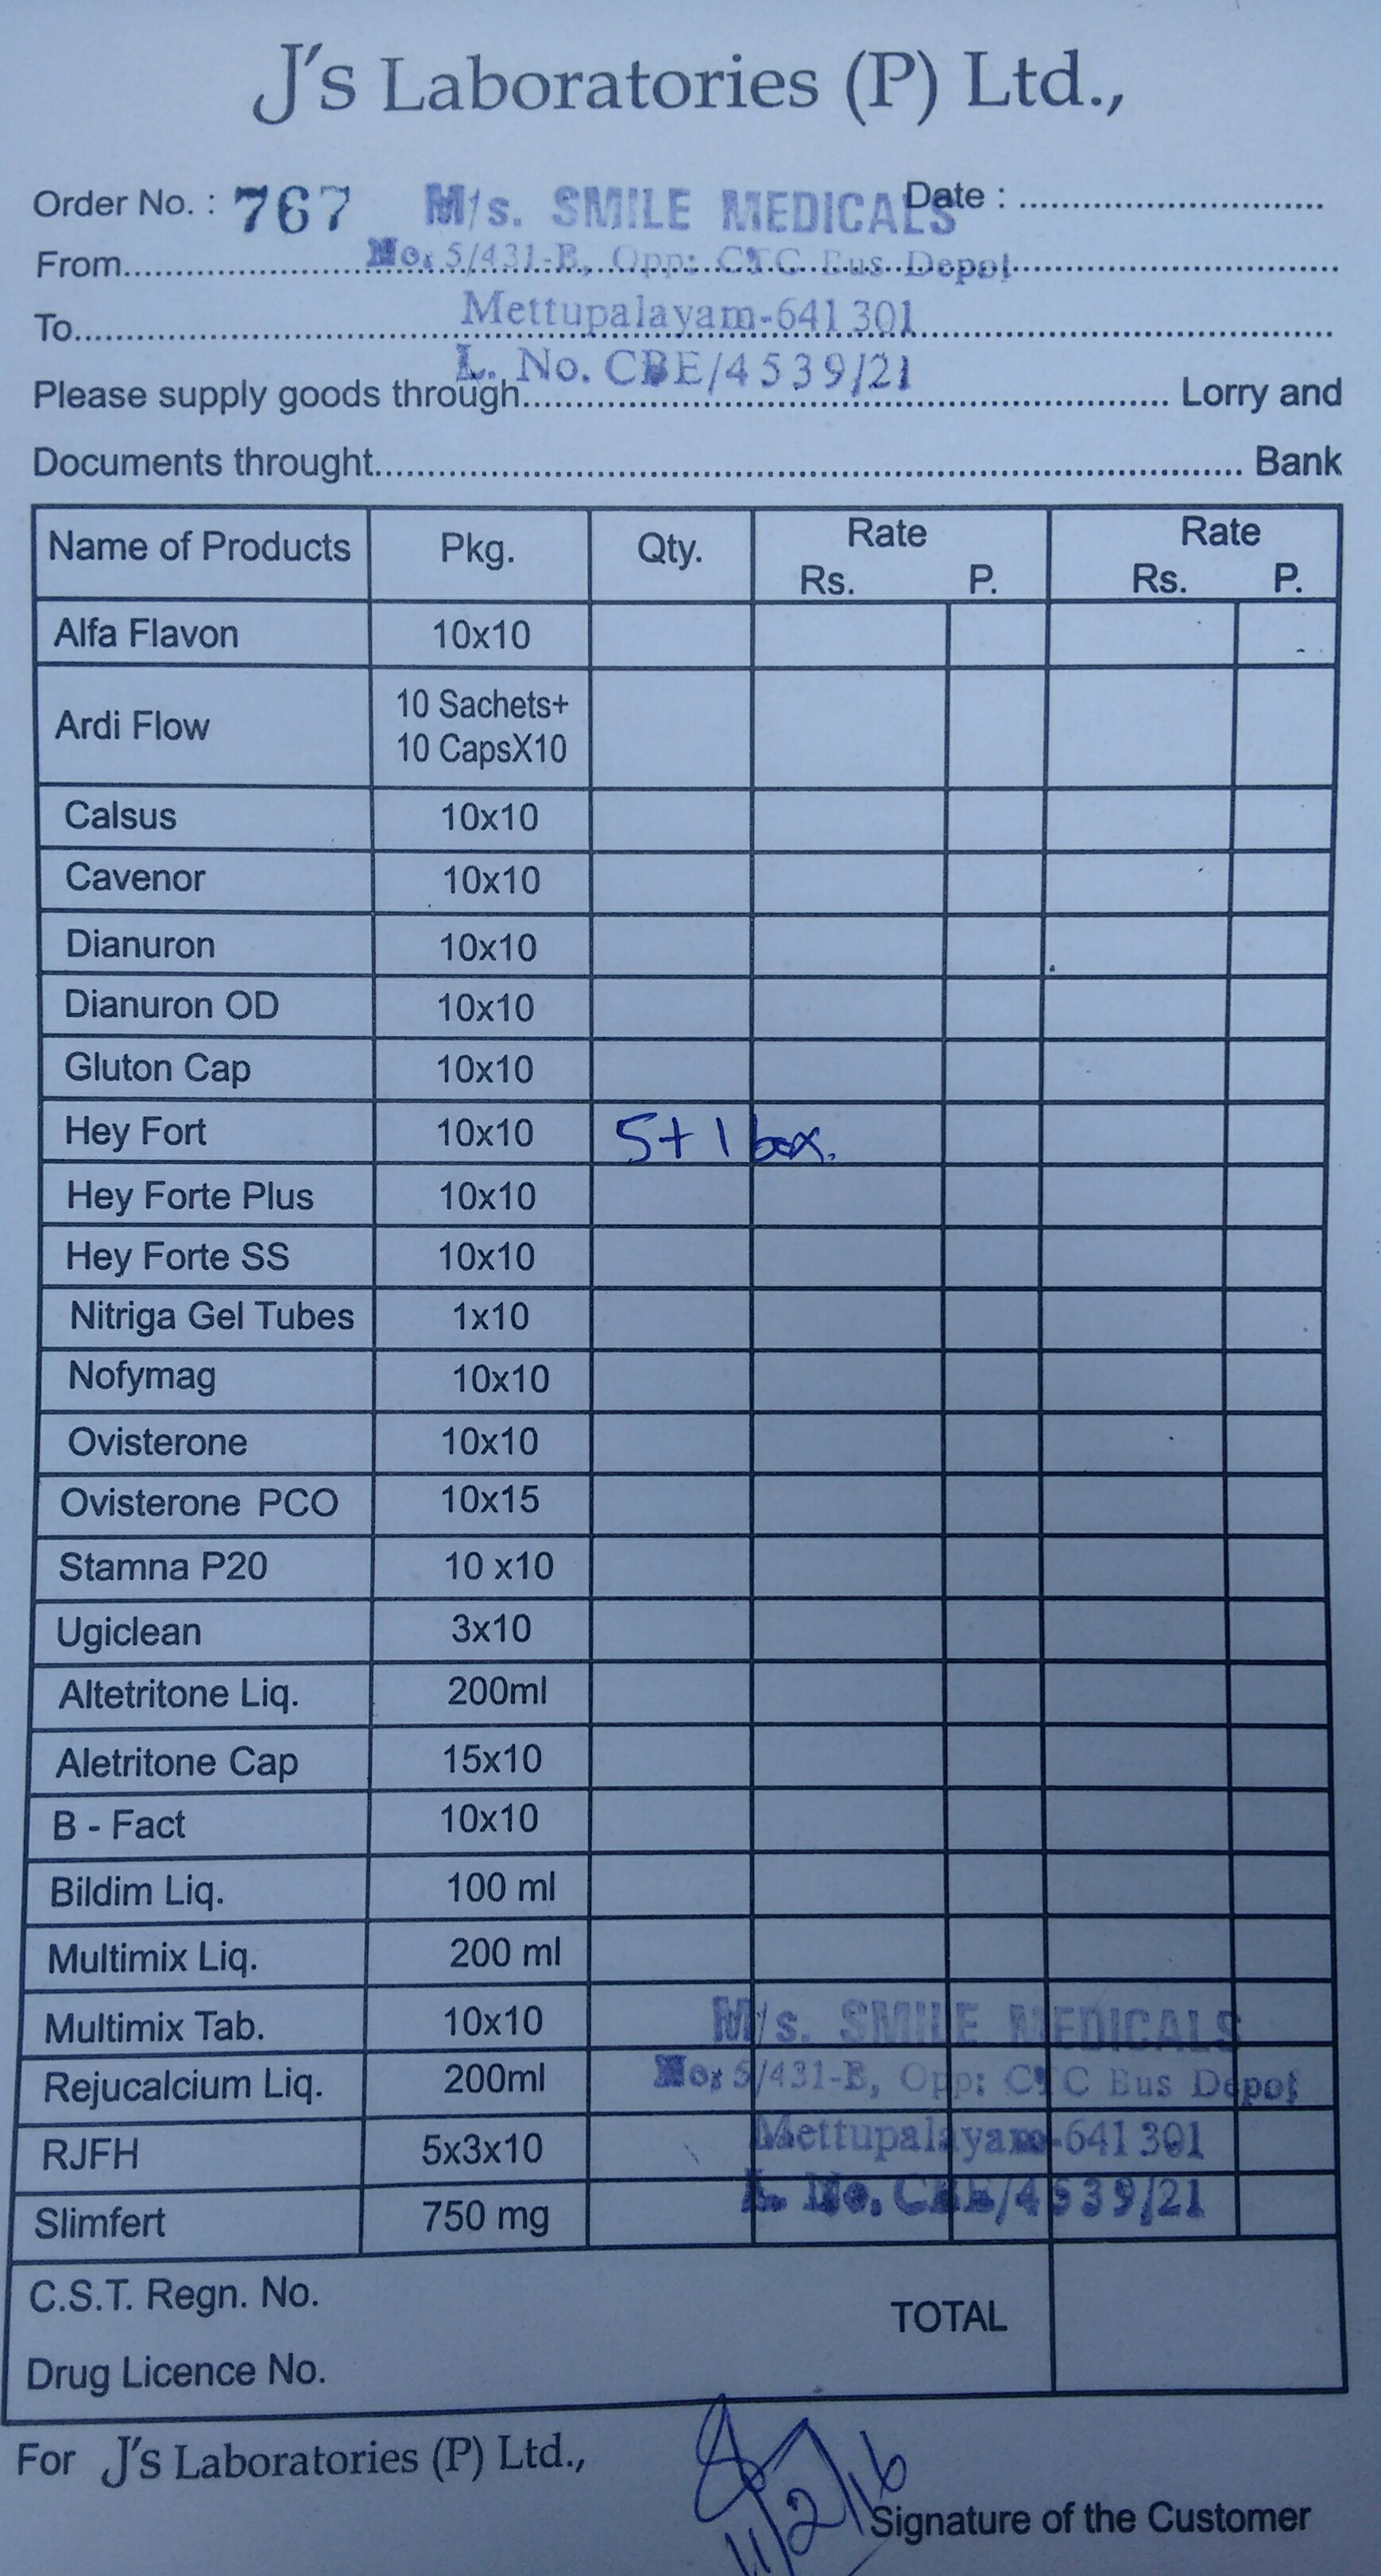 J's Laboratories (P) Ltd.,
Order No. : 767 M/s. SMILE MEDICALS Date : ..............................
From.............. No: 5/431-B, Opp: CTC Bus Depot ..............................
To.............. Mettupalayam-641 301 ..............................
L. No. CBE/4539/21
Please supply goods through.............................. Lorry and
Documents throught.............................. Bank
Name of Products Pkg. Qty. Rate Rs. P. Rate Rs. P.
Alfa Flavon 10x10
Ardi Flow 10 Sachets+
10 CapsX10
Calsus 10x10
Cavenor 10x10
Dianuron 10x10
Dianuron OD 10x10
Gluton Cap 10x10
Hey Fort 10x10 5+1 box.
Hey Forte Plus 10x10
Hey Forte SS 10x10
Nitriga Gel Tubes 1x10
Nofymag 10x10
Ovisterone 10x10
Ovisterone PCO 10x15
Stamna P20 10 x10
Ugiclean 3x10
Altetritone Liq. 200ml
Aletritone Cap 15x10
B - Fact 10x10
Bildim Liq. 100 ml
Multimix Liq. 200 ml
Multimix Tab. 10x10 M/s. SMILE MEDICALS
Rejucalcium Liq. 200ml No: 5/431-B, Opp: CTC Bus Depot
RJFH 5x3x10 Mettupalayam-641 301
Slimfert 750 mg L. No. CBE/4539/21
C.S.T. Regn. No.
TOTAL
Drug Licence No.
For J's Laboratories (P) Ltd.,
11/2/16
Signature of the Customer